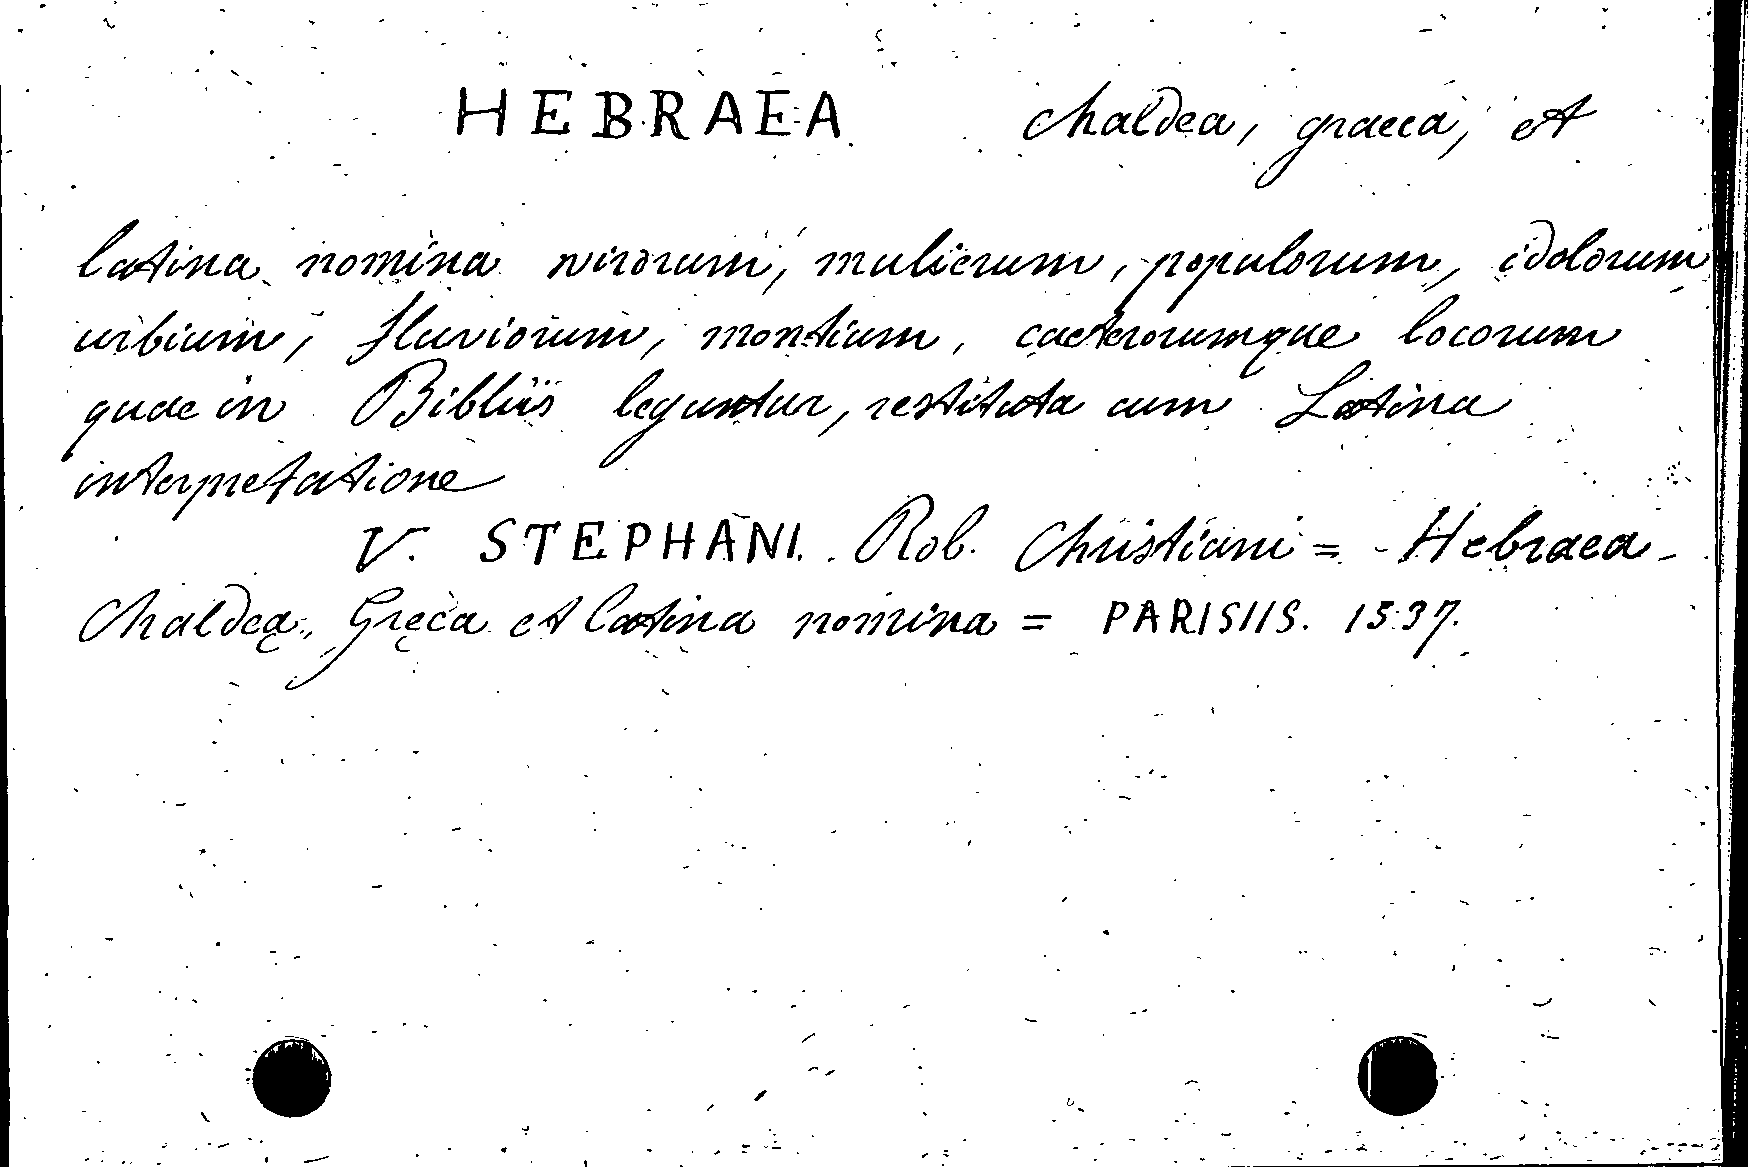 HEBRAEA chaldea, graeca, et
latina nomina virorum, mulierum, populorum, idolorum
urbium, fluviorum, montium, caeterorumque locorum
quae in Bibliis leguntur, restituta cum Latina
interpretatione
V. STEPHANI. Rob. Christiani = Hebraea
Chaldea, Gręca et latina nomina = PARISIIS. 1537.